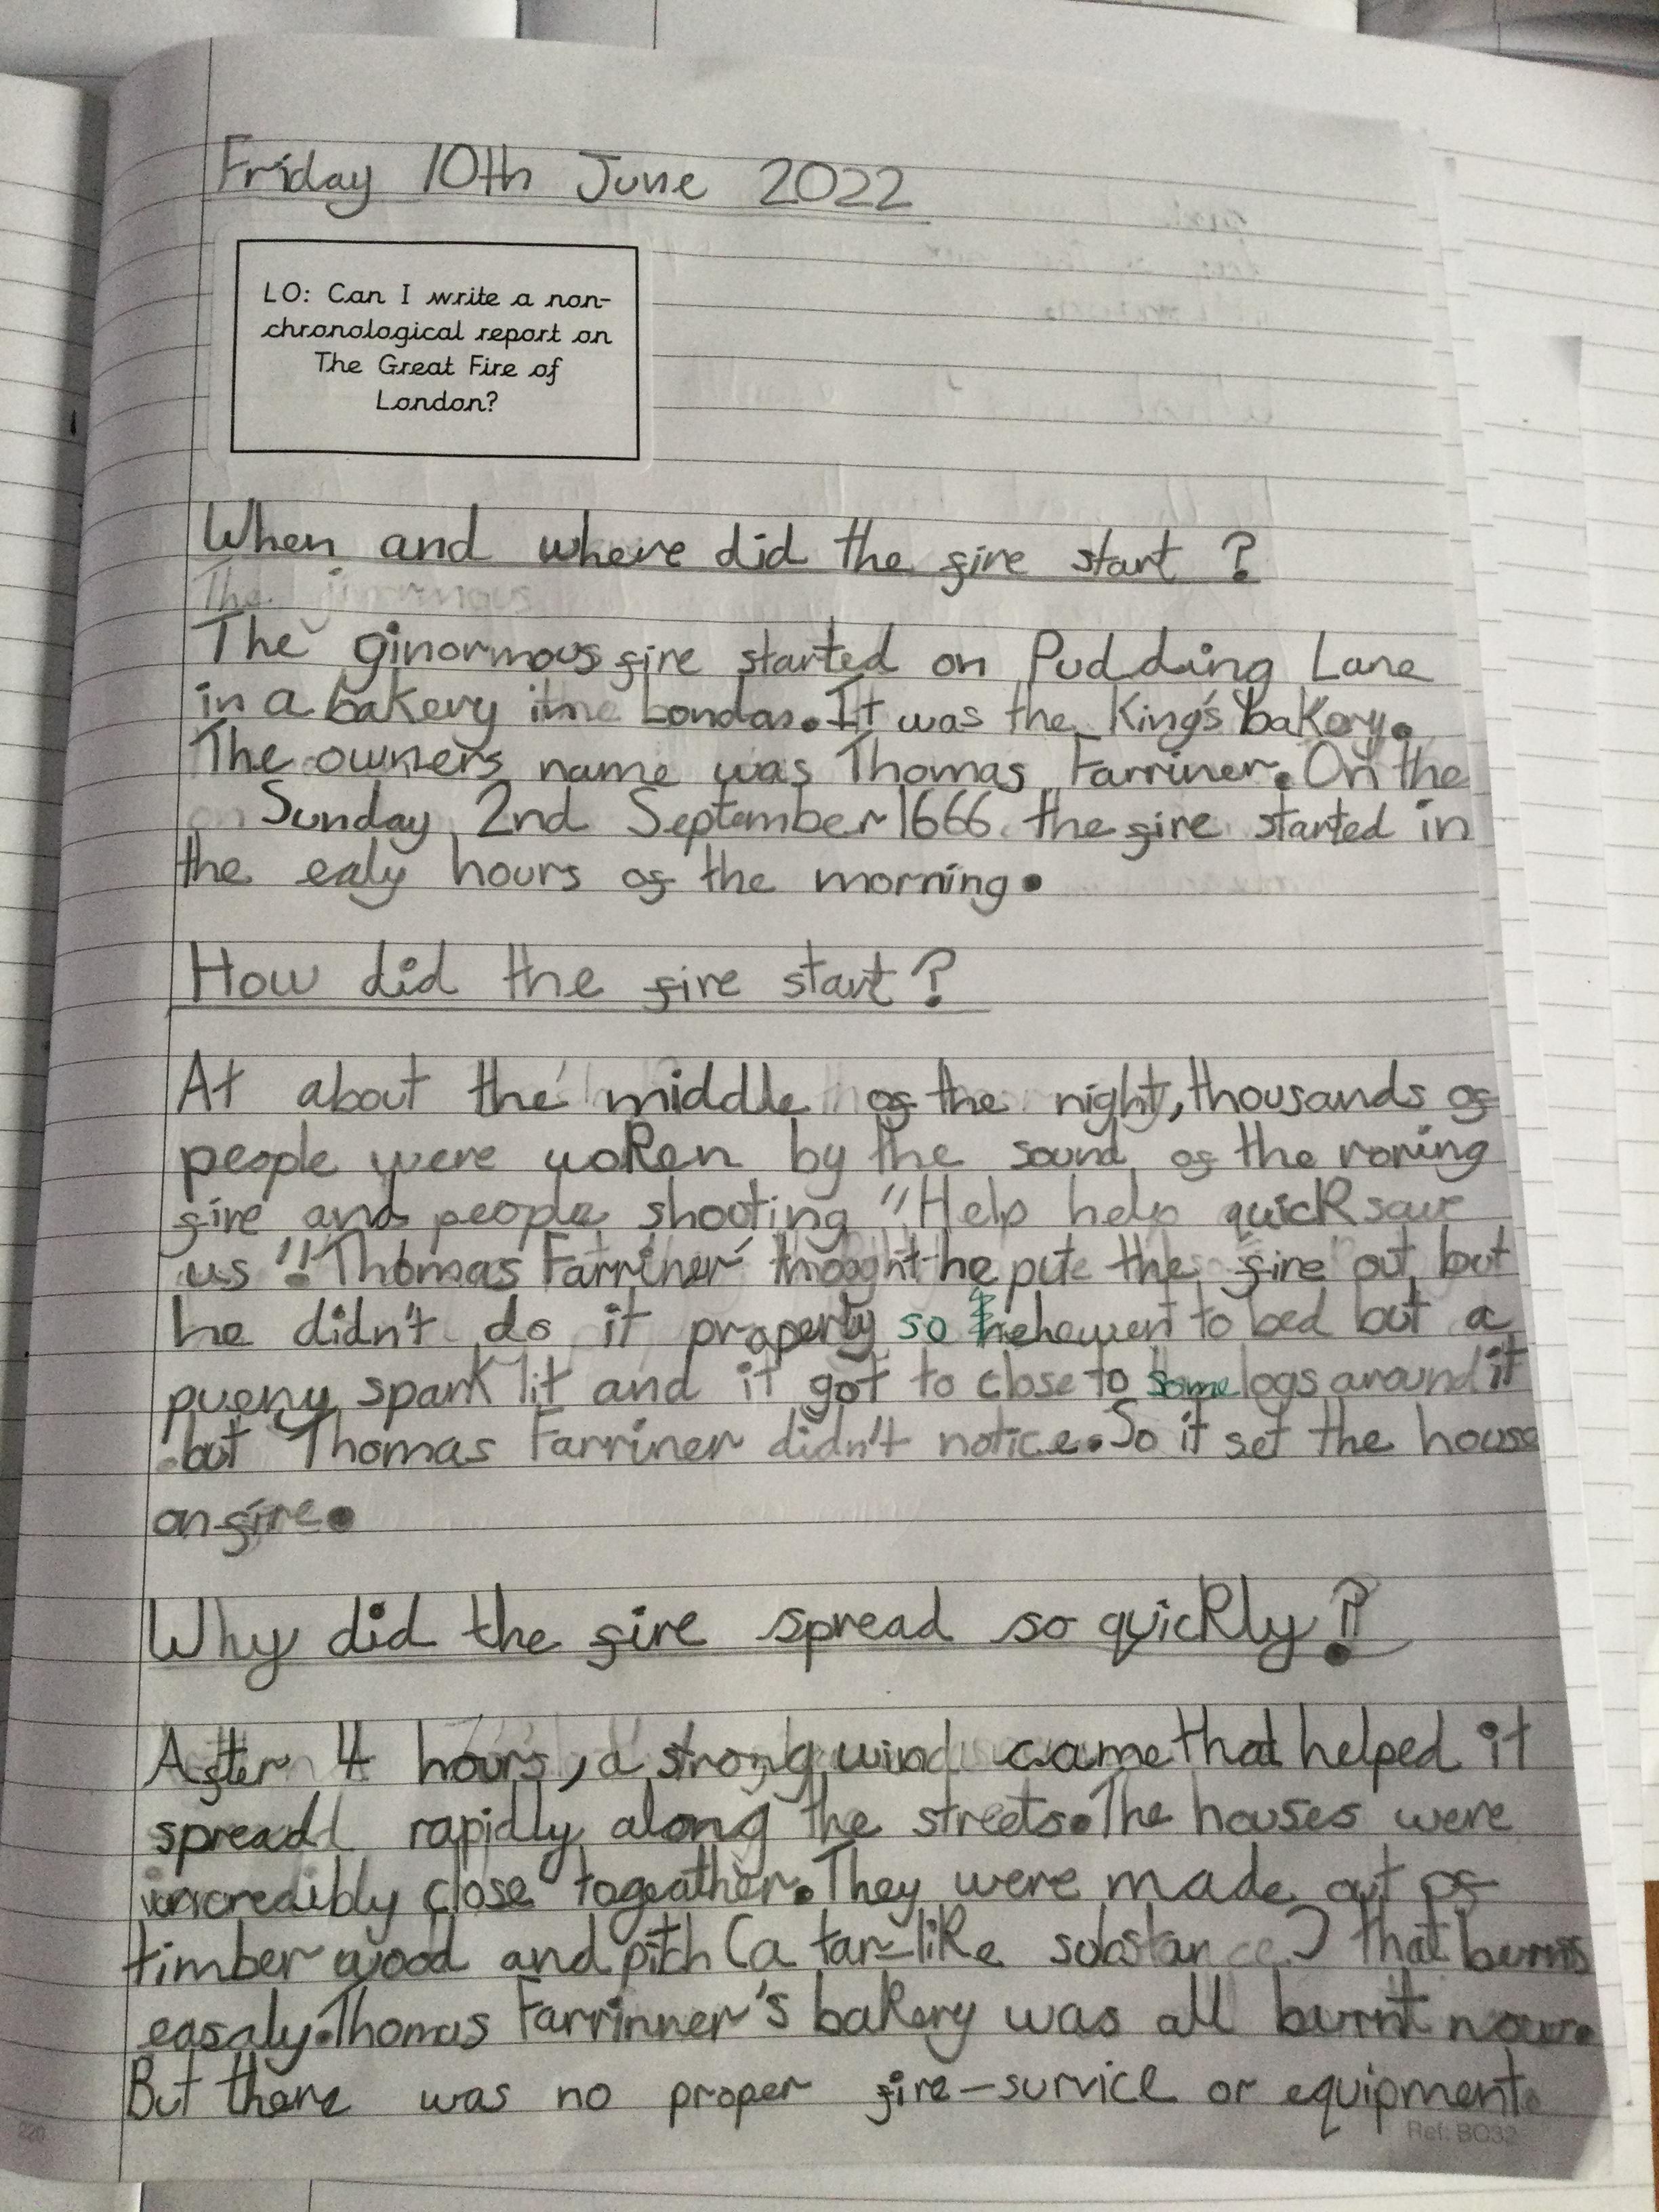 Friday 10th June 2022
LO: Can I write a non-
chronological report on
The Great Fire of
London?
When and where did the fire start ?
The ginormous fire started on Pudding Lane
in a bakery in London. It was the King's bakery.
The owners name was Thomas Farriner. On the
Sunday 2nd September 1666 the fire started in
the ealy hours of the morning.
How did the fire start?
At about the middle of the night, thousands of
people were woken by the sound of the roring
fire and people shooting "Help help quick save
us"! Thomas Farriner thought he put the fire out but
he didn't do it properly so he went to bed but a
pueny spark lit and it got to close to some logs around it
but Thomas Farriner didn't notice. So it set the house
on fire.
Why did the fire spread so quickly?
After 4 hours, a strong wind came that helped it
spread rapidly along the streets. The houses were
incredibly close togeather. They were made out of
timber wood and pitch (a tar-like substance) that burns
easaly. Thomas Farrinner's bakery was all burnt now.
But there was no proper fire-survice or equipment.
220
Ref: BO32